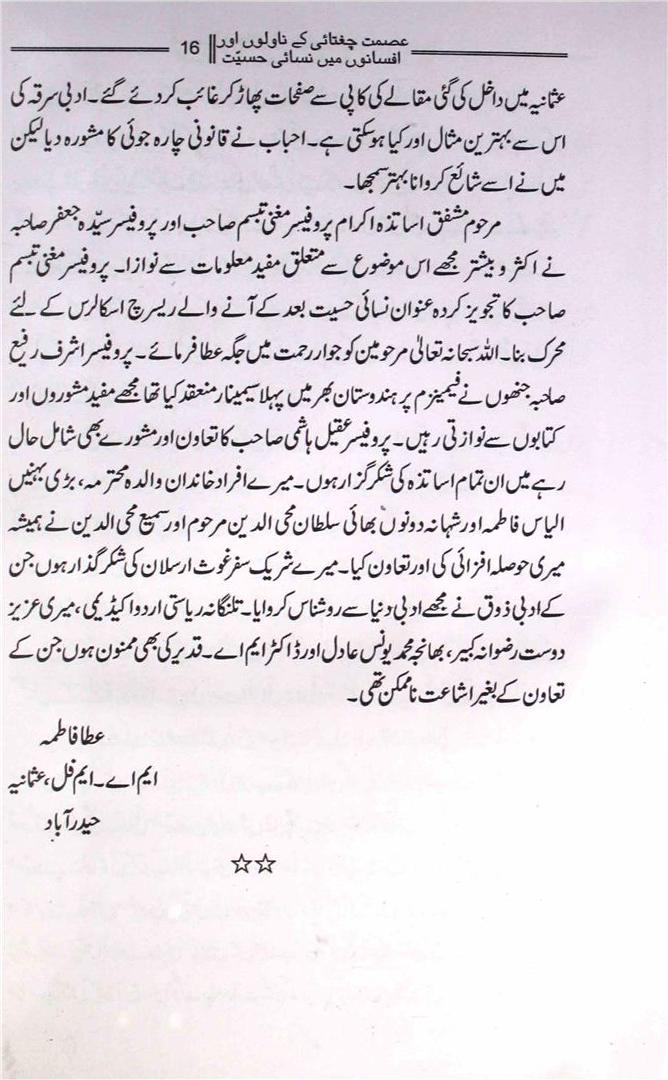 عصمت چغتائی کے ناولوں اور
افسانوں میں نسائی حسیّت
16
عثمانیہ میں داخل کی گئی مقالے کی کاپی سے صفحات پھاڑ کر غائب کر دئے گئے۔ ادبی سرقہ کی
اس سے بہترین مثال اور کیا ہو سکتی ہے۔ احباب نے قانونی چارہ جوئی کا مشورہ دیا لیکن
میں نے اسے شائع کروانا بہتر سمجھا۔
مرحوم مشفق اساتذہ اکرام پروفیسر مغنی تبسم صاحب اور پروفیسر سیّدہ جعفر صاحبہ
نے اکثر و بیشتر مجھے اس موضوع سے متعلق مفید معلومات سے نوازا۔ پروفیسر مغنی تبسم
صاحب کا تجویز کردہ عنوان نسائی حسیت بعد کے آنے والے ریسرچ اسکالرس کے لئے
محرک بنا۔ اللہ سبحانہ تعالیٰ مرحومین کو جوار رحمت میں جگہ عطا فرمائے۔ پروفیسر اشرف رفیع
صاحبہ جنھوں نے فیمینزم پر ہندوستان بھر میں پہلا سیمینار منعقد کیا تھا مجھے مفید مشوروں اور
کتابوں سے نوازتی رہیں۔ پروفیسر عقیل ہاشمی صاحب کا تعاون اور مشورے بھی شامل حال
رہے میں ان تمام اساتذہ کی شکر گزار ہوں۔ میرے افراد خاندان والدہ محترمہ، بڑی بہنیں
الیاس فاطمہ اور شہانہ دونوں بھائی سلطان محی الدین مرحوم اور سمیع محی الدین نے ہمیشہ
میری حوصلہ افزائی کی اور تعاون کیا۔ میرے شریک سفر غوث ارسلان کی شکر گذار ہوں جن
کے ادبی ذوق نے مجھے ادبی دنیا سے روشناس کروایا۔ تلنگانہ ریاستی اردو اکیڈیمی، میری عزیز
دوست رضوانہ کبیر، بھانجہ محمد یونس عادل اور ڈاکٹر ایم اے۔ قدیر کی بھی ممنون ہوں جن کے
تعاون کے بغیر اشاعت ناممکن تھی۔
عطا فاطمہ
ایم اے۔ ایم فل، عثمانیہ
حیدرآباد
☆☆